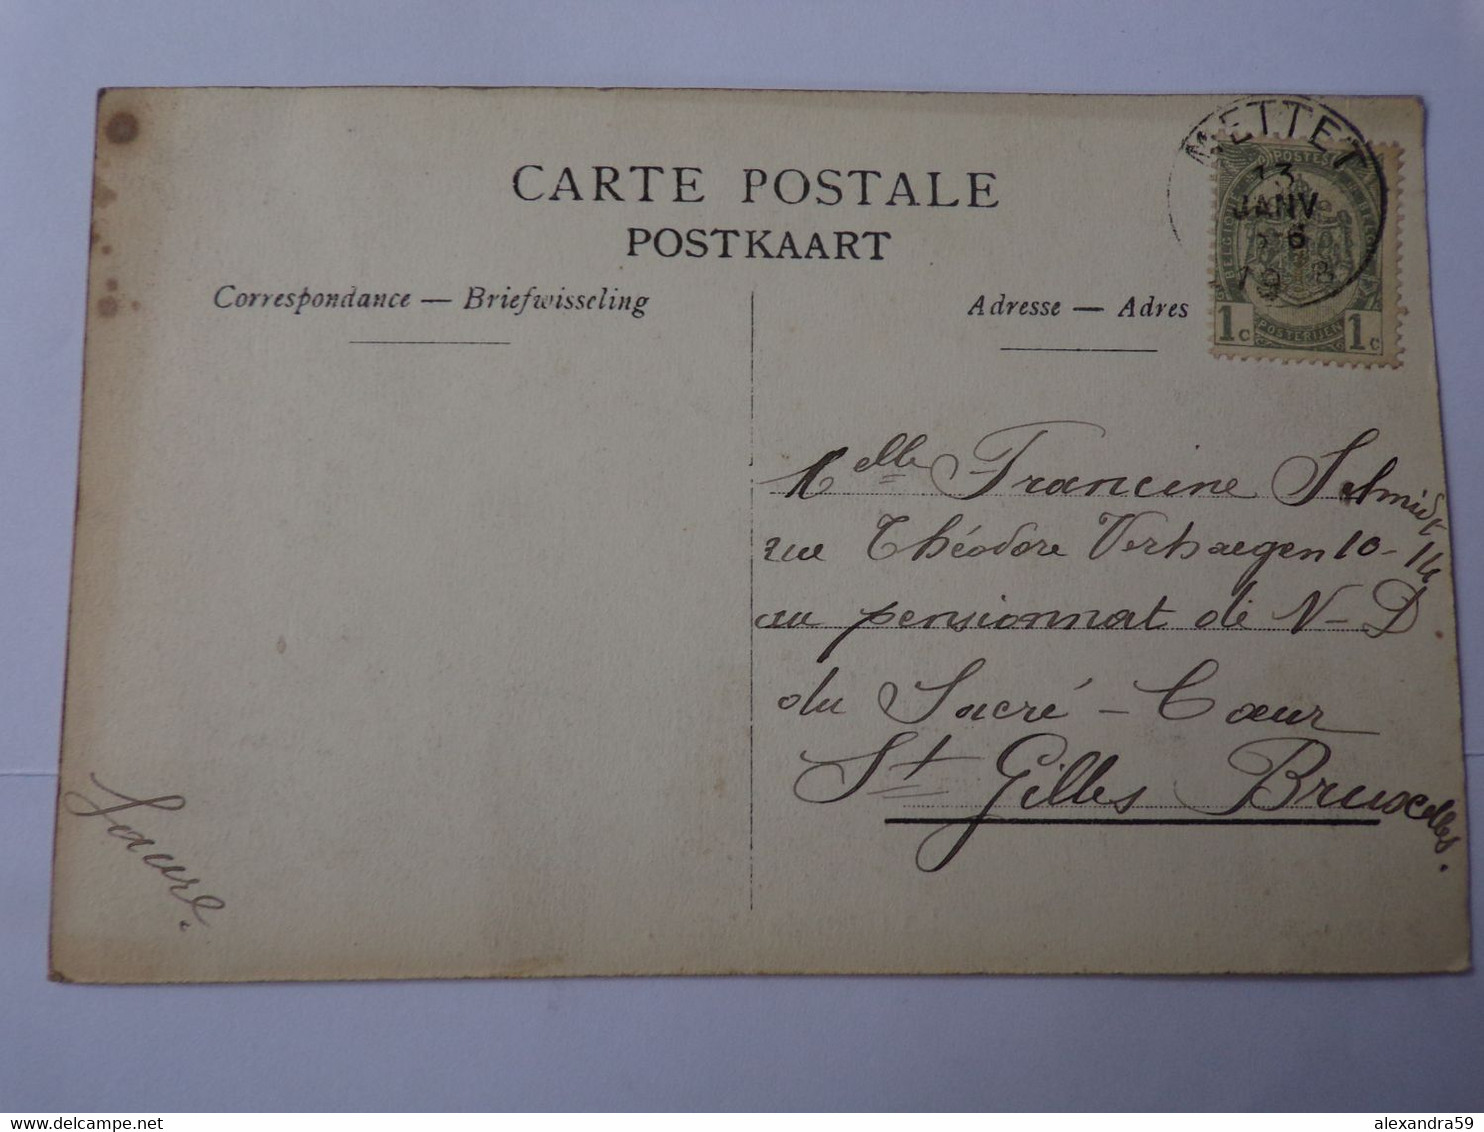 CARTE POSTALE
POSTKAART
Correspondance — Briefwisseling
Adresse — Adres
METTET
13
JANV
6
19 8
POSTES
1c POSTERIJEN 1c
Melle Francine Schmidt
rue Théodore Verhaegen 10-14
au pensionnat de N-D
du Sacré-Cœur
St Gilles Bruxelles.
Laure.
alexandra59